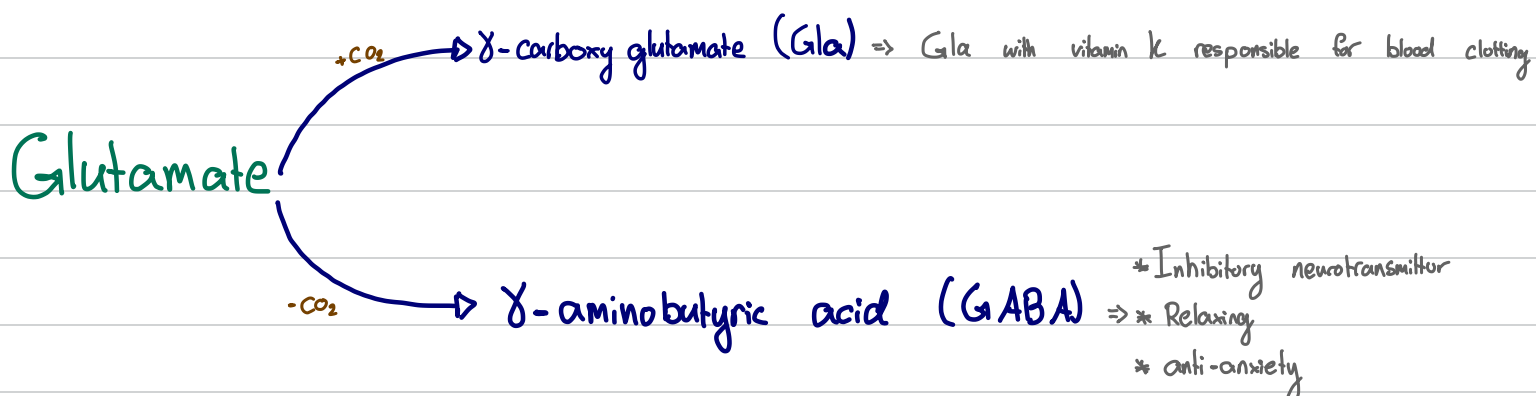 +CO₂
γ-carboxy glutamate (Gla) => Gla with vitamin K responsible for blood clotting
Glutamate
-CO₂
γ-aminobutyric acid (GABA) =>
* Inhibitory neurotransmittor
* Relaxing
* anti-anxiety